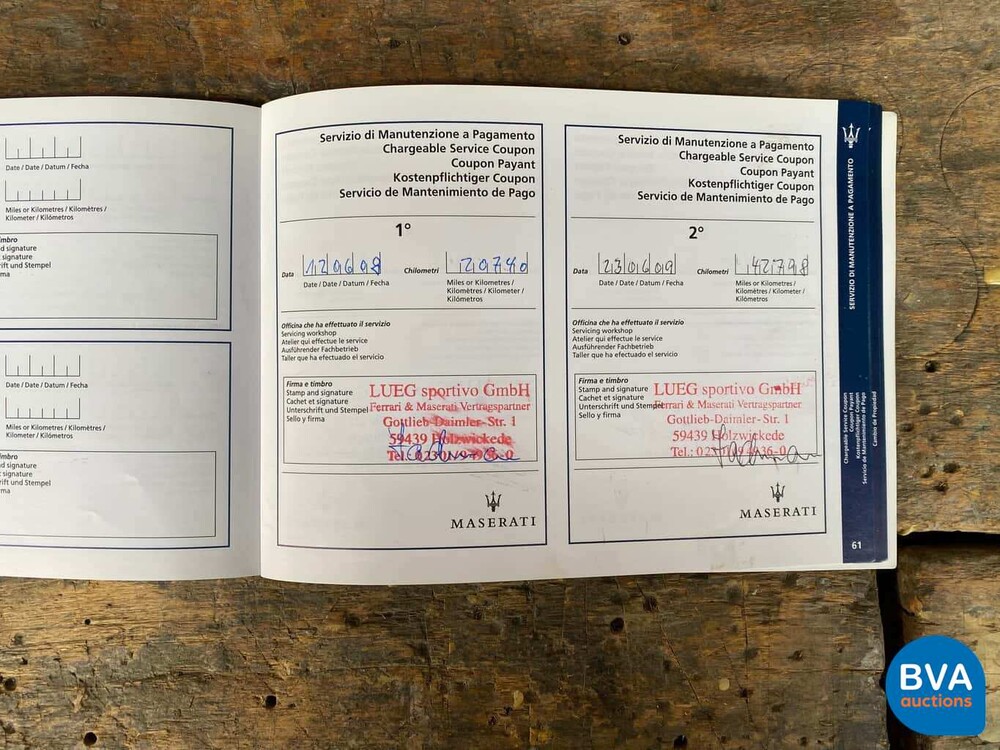 Date / Date / Datum / Fecha
Miles or Kilometres / Kilomètres /
Kilometer / Kilómetros
imbro
d signature
signature
rift und Stempel
ma
Date / Date / Datum / Fecha
Miles or Kilometres / Kilomètres /
Kilometer / Kilómetros
imbro
d signature
signature
rift und Stempel
ma
Servizio di Manutenzione a Pagamento
Chargeable Service Coupon
Coupon Payant
Kostenpflichtiger Coupon
Servicio de Mantenimiento de Pago
1°
Data 120698 Chilometri 20740
Date / Date / Datum / Fecha
Miles or Kilometres /
Kilomètres / Kilometer /
Kilómetros
Officina che ha effettuato il servizio
Servicing workshop
Atelier qui effectue le service
Ausführender Fachbetrieb
Taller que ha efectuado el servicio
Firma e timbro
Stamp and signature
Cachet et signature
Unterschrift und Stempel
Sello y firma
LUEG sportivo GmbH
Ferrari & Maserati Vertragspartner
Gottlieb-Daimler-Str. 1
59439 Holzwickede
Tel.:
MASERATI
Servizio di Manutenzione a Pagamento
Chargeable Service Coupon
Coupon Payant
Kostenpflichtiger Coupon
Servicio de Mantenimiento de Pago
2°
Data 230609 Chilometri 42798
Date / Date / Datum / Fecha
Miles or Kilometres /
Kilomètres / Kilometer /
Kilómetros
Officina che ha effettuato il servizio
Servicing workshop
Atelier qui effectue le service
Ausführender Fachbetrieb
Taller que ha efectuado el servicio
Firma e timbro
Stamp and signature
Cachet et signature
Unterschrift und Stempel
Sello y firma
LUEG sportivo GmbH
Ferrari & Maserati Vertragspartner
Gottlieb-Daimler-Str. 1
59439 Holzwickede
Tel.:
MASERATI
SERVIZIO DI MANUTENZIONE A PAGAMENTO
Chargeable Service Coupon
Coupon Payant
Kostenpflichtiger Coupon
Servicio de Mantenimiento de Pago
Cambio de Propiedad
61
BVA
auctions